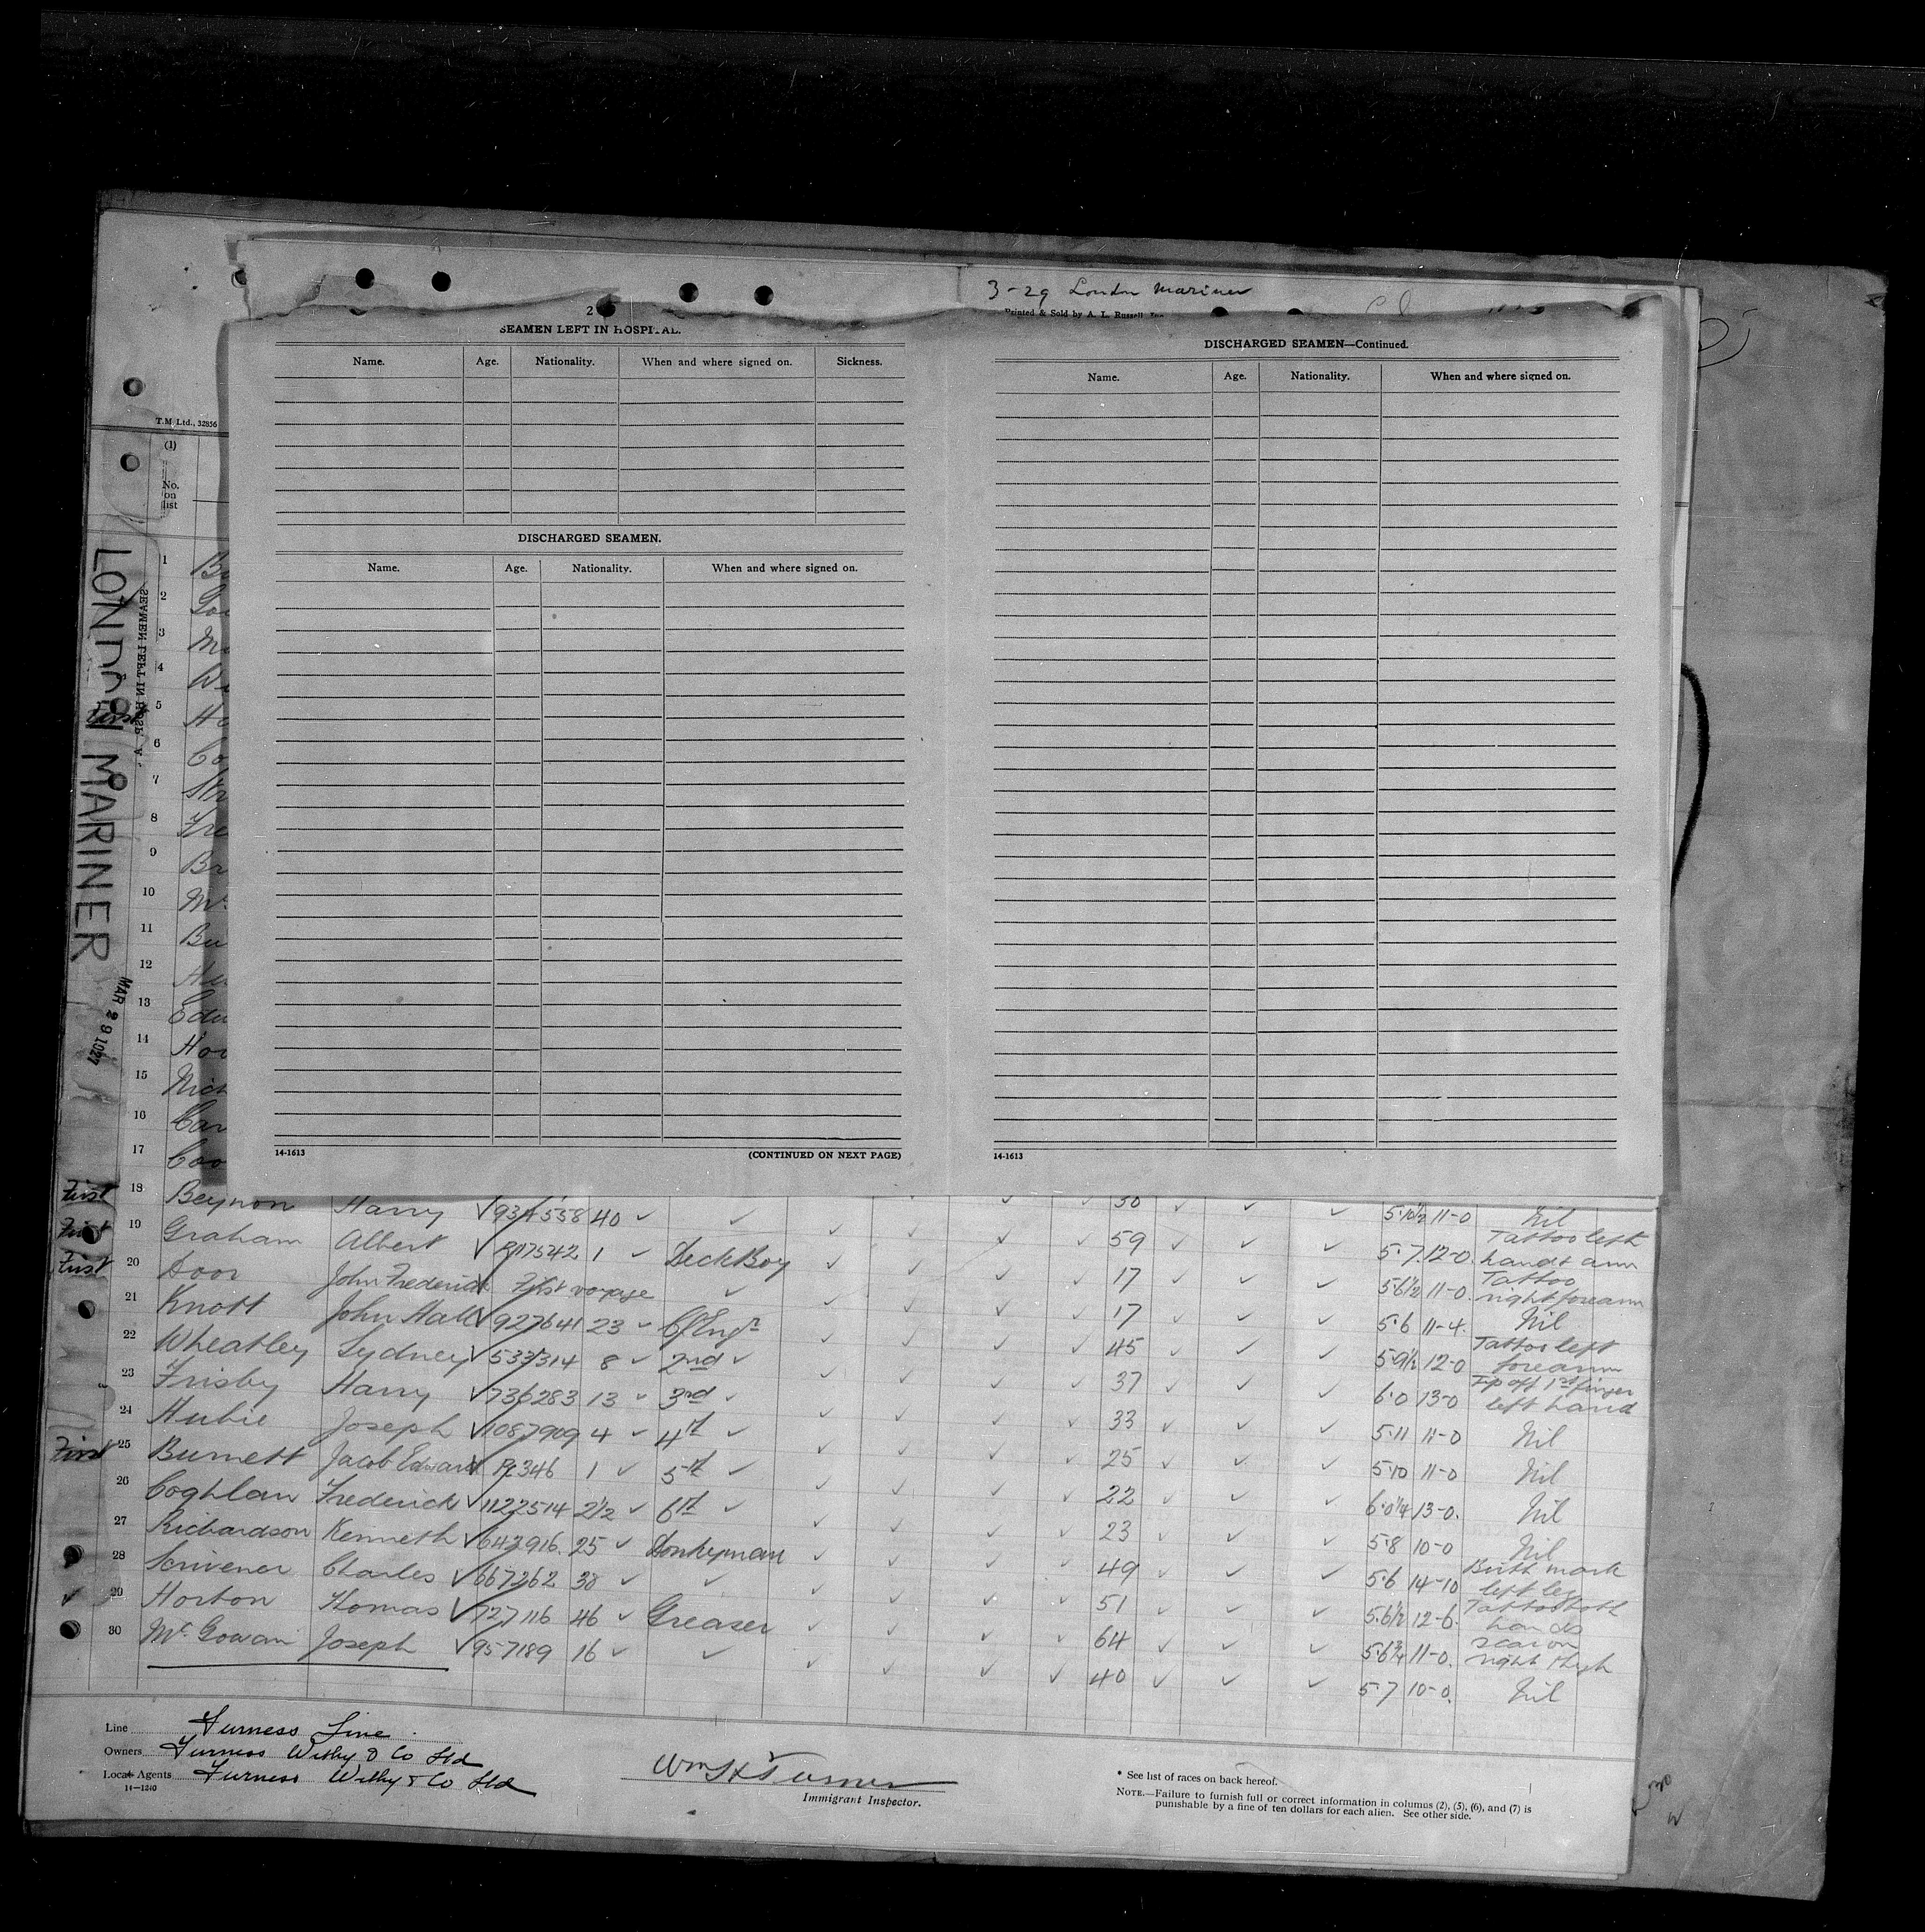 3-29 London Mariner
Printed & Sold by A. L. Russell, Inc.
2
SEAMEN LEFT IN HOSPITAL.
Name. Age. Nationality. When and where signed on. Sickness.
DISCHARGED SEAMEN.
Name. Age. Nationality. When and where signed on.
14-1613 (CONTINUED ON NEXT PAGE)
DISCHARGED SEAMEN—Continued.
Name. Age. Nationality. When and where signed on.
14-1613
T.M. Ltd., 32856
(1)
No. on list
LONDON MARINER
SEAMEN LEFT IN HOSP
MAR 29 1927
1 B
2 Go
3 M
4 W
First 5 H
6 Co
7 Str
8 Fre
9 Br
10 Mc
11 Bu
12
13 Edw
14 Hor
15 Rich
16 Car
17 Coo
First 18 Beynon Harry ✓ 934558 40 ✓ ✓ 30 5·10½ 11-0 Nil
First 19 Graham Albert ✓ R117542 1 ✓ Deck Boy 59 5·7 12-0 Tattoo left hand & arm
First 20 Door John Frederick First voyage ✓ 17 5·6½ 11-0 Tattoo right forearm
21 Knott John Hall ✓ 927641 23 ✓ C/Engr 17 5·6 11-4 Nil
22 Wheatley Sydney ✓ 533314 8 ✓ 2nd ✓ 45 5·9½ 12-0 Tattoo left forearm
23 Frisby Harry ✓ 736283 13 ✓ 3rd ✓ 37 6·0 13-0 Tip off 1st finger left hand
24 Hubie Joseph ✓ 1087909 4 ✓ 4th ✓ 33 5·11 11-0 Nil
First 25 Burnett Jacob Edward R346 1 ✓ 5th ✓ 25 5·10 11-0 Nil
26 Coghlan Frederick ✓ 1122514 2½ ✓ 6th ✓ 22 6·0¼ 13-0. Nil
27 Richardson Kenneth ✓ 643916. 25 ✓ Donkeyman 23 5·8 10-0 Nil
28 Scrivener Charles ✓ 667262 38 ✓ ✓ 49 5·6 14-10 Birth mark left leg
✓ 29 Horton Thomas ✓ 727116 46 ✓ Greaser 51 5·6½ 12-6. Tattoo both hands
30 McGowan Joseph ✓ 957189 16 ✓ ✓ 64 5·6¾ 11-0. scar on right thigh
40 5·7 10-0. Nil
Line Furness Line
Owners Furness Withy & Co Ltd
Local Agents Furness Withy & Co Ltd
14-1240
Wm H Turner
Immigrant Inspector.
* See list of races on back hereof.
NOTE.—Failure to furnish full or correct information in columns (2), (5), (6), and (7) is
punishable by a fine of ten dollars for each alien. See other side.